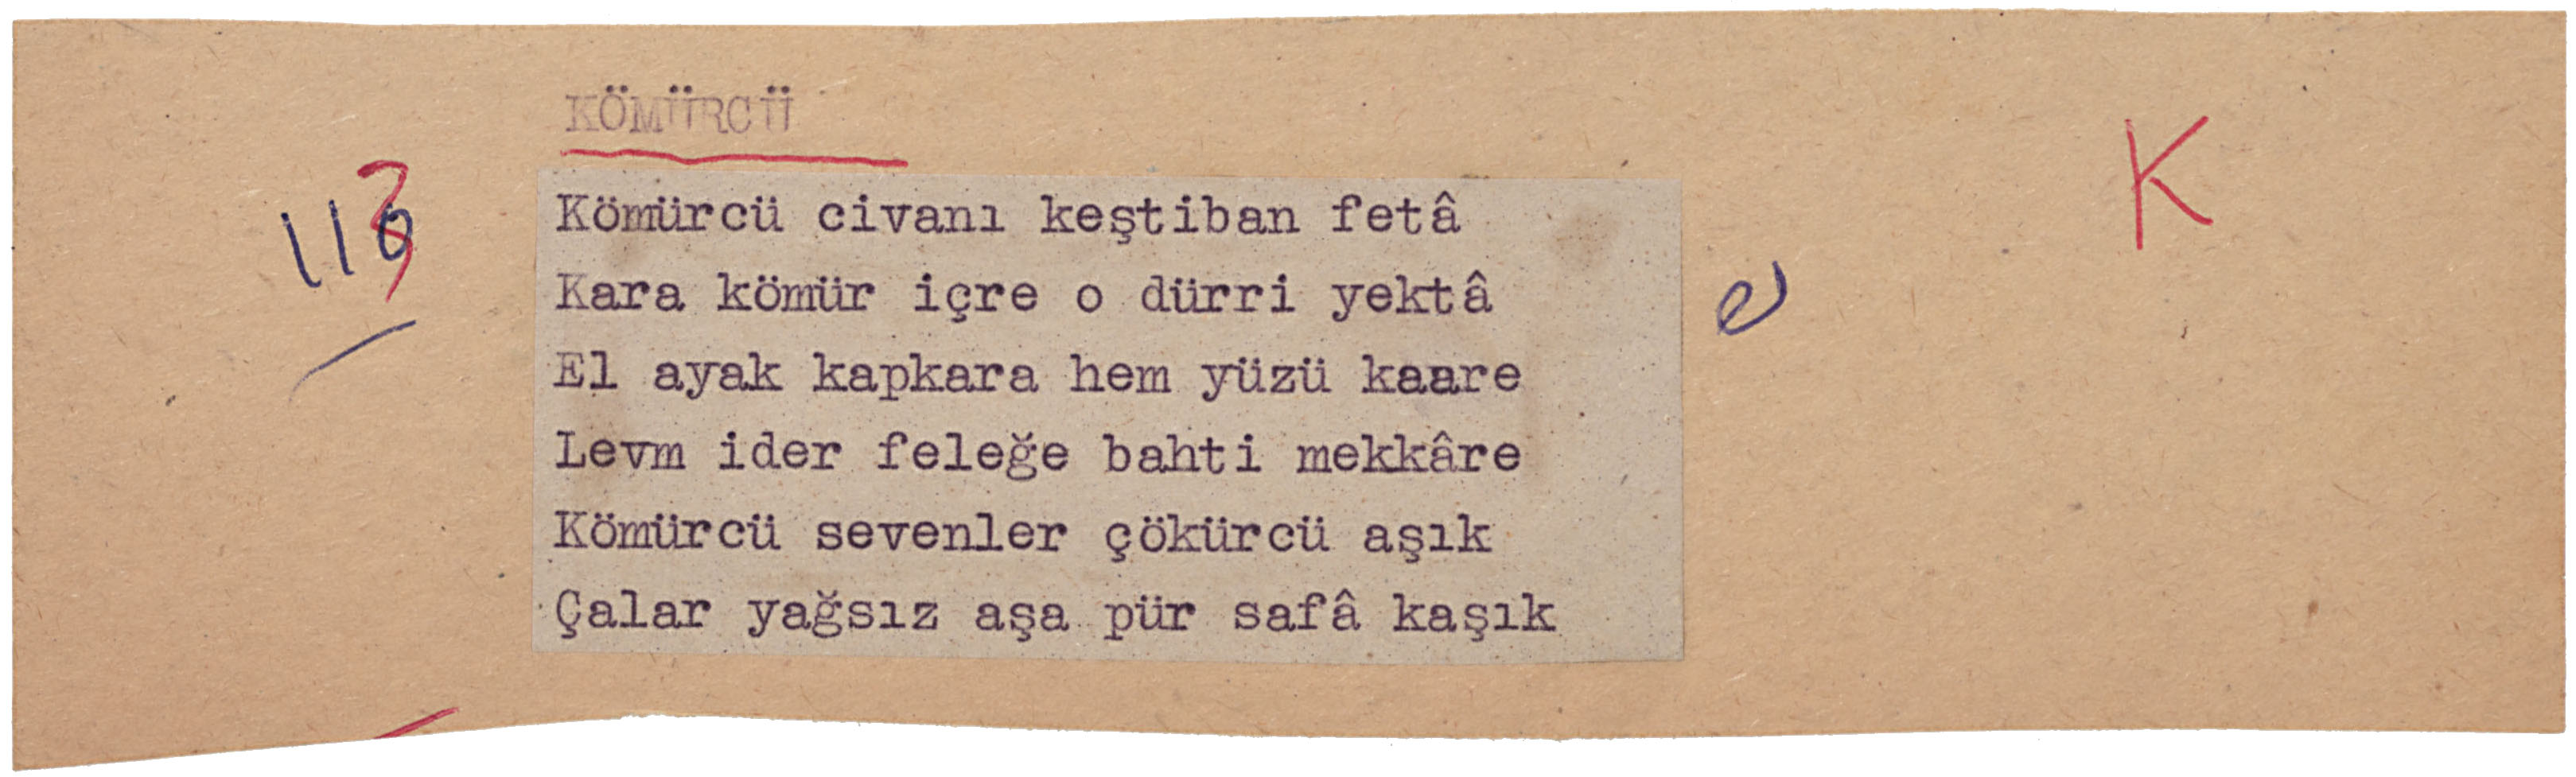 KÖMÜRCÜ
K
Kömürcü civanı keştiban fetâ
Kara kömür içre o dürri yektâ
El ayak kapkara hem yüzü kaare
Levm ider feleğe bahti mekkâre
Kömürcü sevenler çökürcü aşık
Çalar yağsız aşa pür safâ kaşık